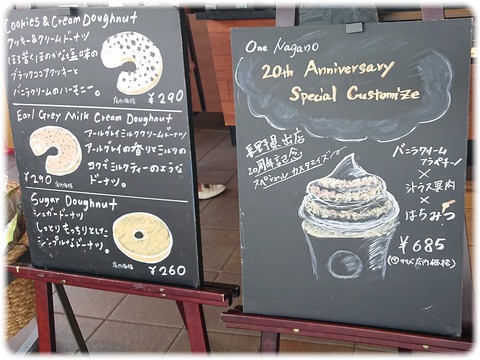 Cookies & Cream Doughnut
クッキー&クリームドーナツ
ほろ苦くほのかな塩味の
ブラックココアクッキーと
バニラクリームのハーモニー。
店内価格 ¥290
Earl Grey Milk Cream Doughnut
アールグレイミルククリームドーナツ
アールグレイの香りとミルクの
コクでミルクティーのような
ドーナツ。
¥290 店内価格
Sugar Doughnut
シュガードーナツ
しっとりもっちりとした
シンプルなドーナツ。
店内価格 ¥260
One Nagano
20th Anniversary
Special Customize
長野県出店
20周年記念
スペシャルカスタマイズ
バニラクリーム
フラペチーノ
×
シトラス果肉
×
はちみつ
¥685
店内価格)